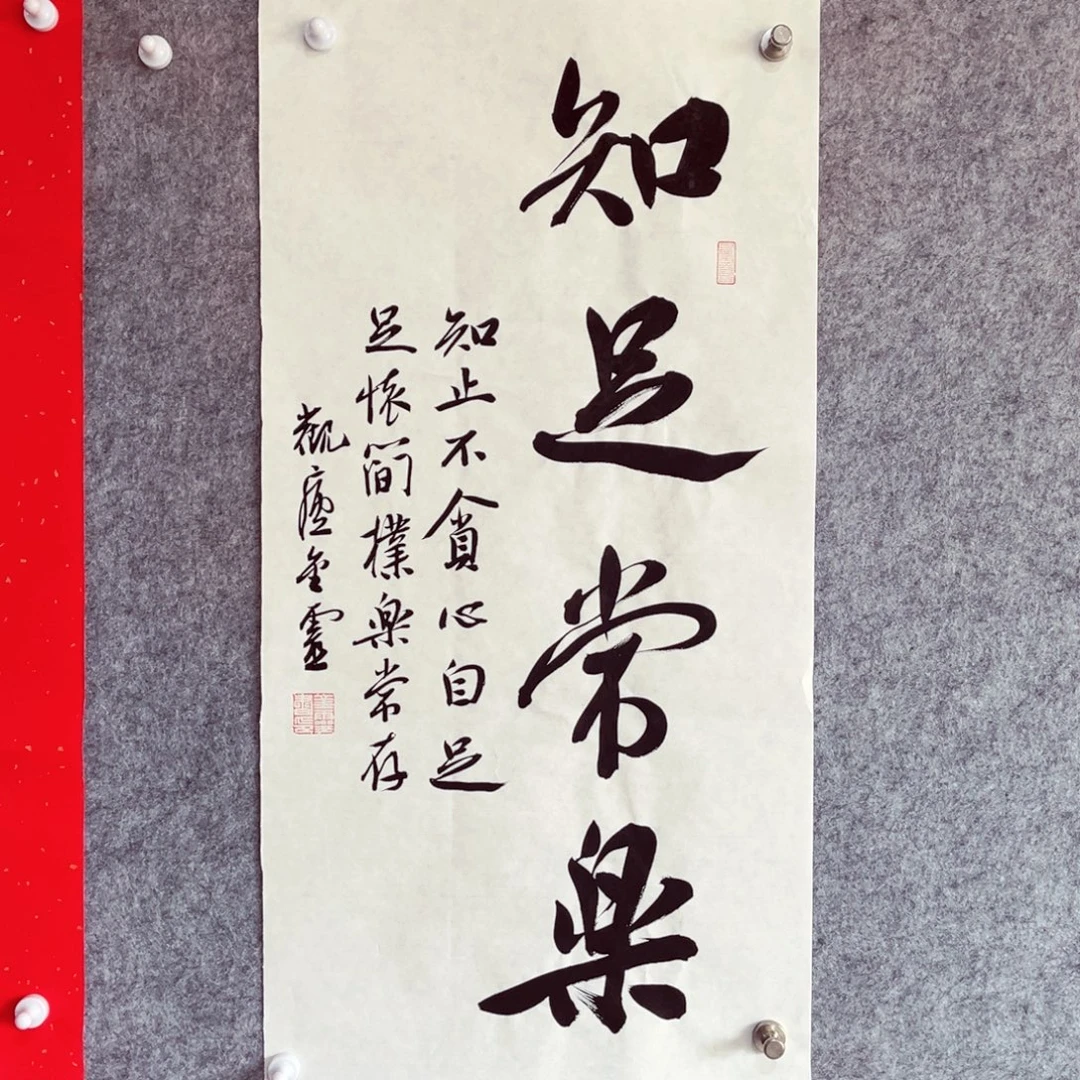 知足常樂
知止不貪心自足
足懷簡樸樂常存
觀廬金靈